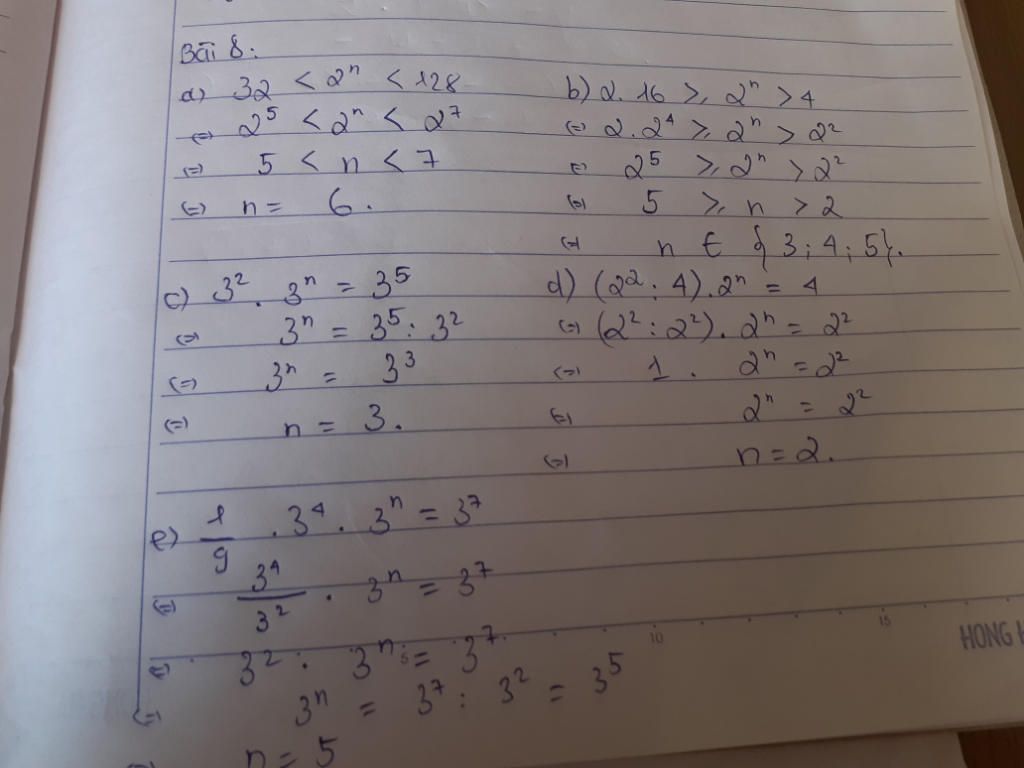 Bài 8:
a) 32 < 2ⁿ < 128
⇔ 2⁵ < 2ⁿ < 2⁷
⇔ 5 < n < 7
⇔ n = 6.
b) 2.16 ⩾ 2ⁿ > 4
⇔ 2.2⁴ ⩾ 2ⁿ > 2²
⇔ 2⁵ ⩾ 2ⁿ > 2²
⇔ 5 ⩾ n > 2
⇔ n ∈ {3; 4; 5}.
c) 3² . 3ⁿ = 3⁵
⇔ 3ⁿ = 3⁵ : 3²
⇔ 3ⁿ = 3³
⇔ n = 3.
d) (2² : 4).2ⁿ = 4
⇔ (2² : 2²). 2ⁿ = 2²
⇔ 1 . 2ⁿ = 2²
⇔ 2ⁿ = 2²
⇔ n = 2.
e) 1/9 . 3⁴ . 3ⁿ = 3⁷
⇔ 3⁴/3² . 3ⁿ = 3⁷
⇔ 3² . 3ⁿ = 3⁷
⇔ 3ⁿ = 3⁷ : 3² = 3⁵
n = 5
5 10 15
HONG